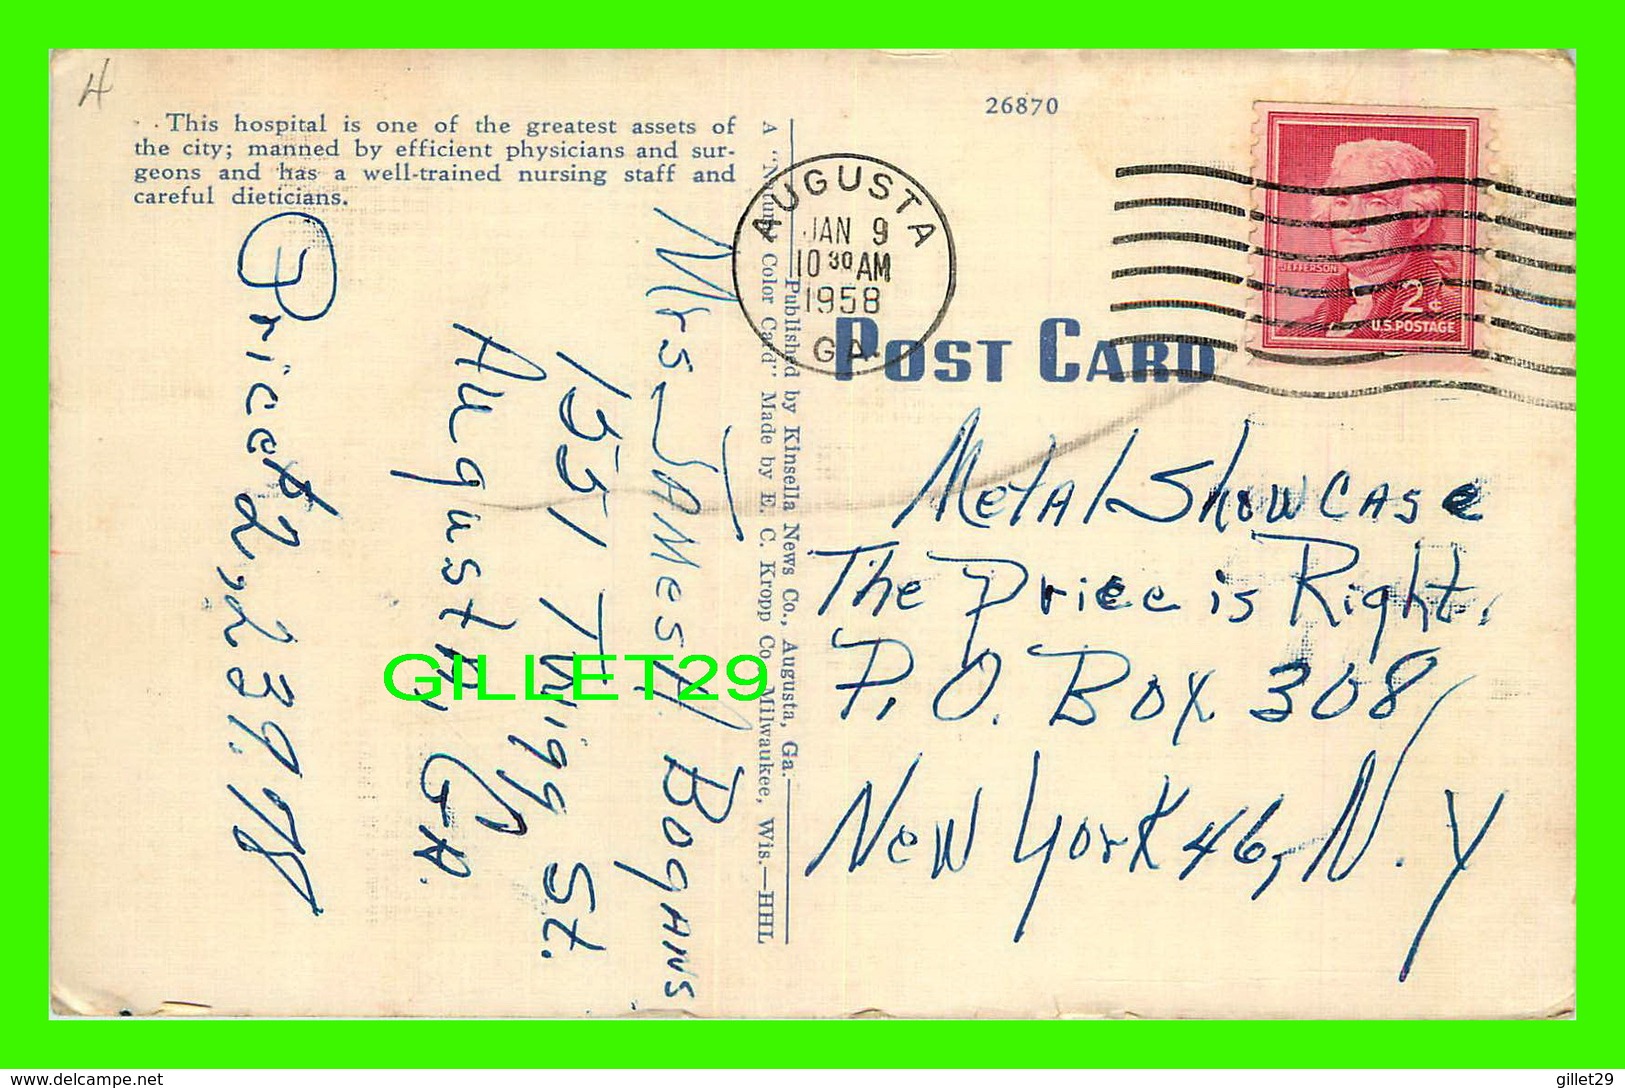 4
This hospital is one of the greatest assets of
the city; manned by efficient physicians and sur-
geons and has a well-trained nursing staff and
careful dieticians.
26870
AUGUSTA
JAN 9
10 30 AM
1958
GA.
JEFFERSON
2¢
U.S. POSTAGE
POST CARD
A "Natural Color Card" Made by E. C. Kropp Co., Milwaukee, Wis.—HHL
Published by Kinsella News Co., Augusta, Ga.
Mrs. JAMes H Bogans
1551 Twiggs St.
Augusta, GA.
Price 2,239.98
Metal Showcase
The Price is Right.
P.O. Box 308
New York 46, N.Y
GILLET29
http://www.delcampe.net
gillet29